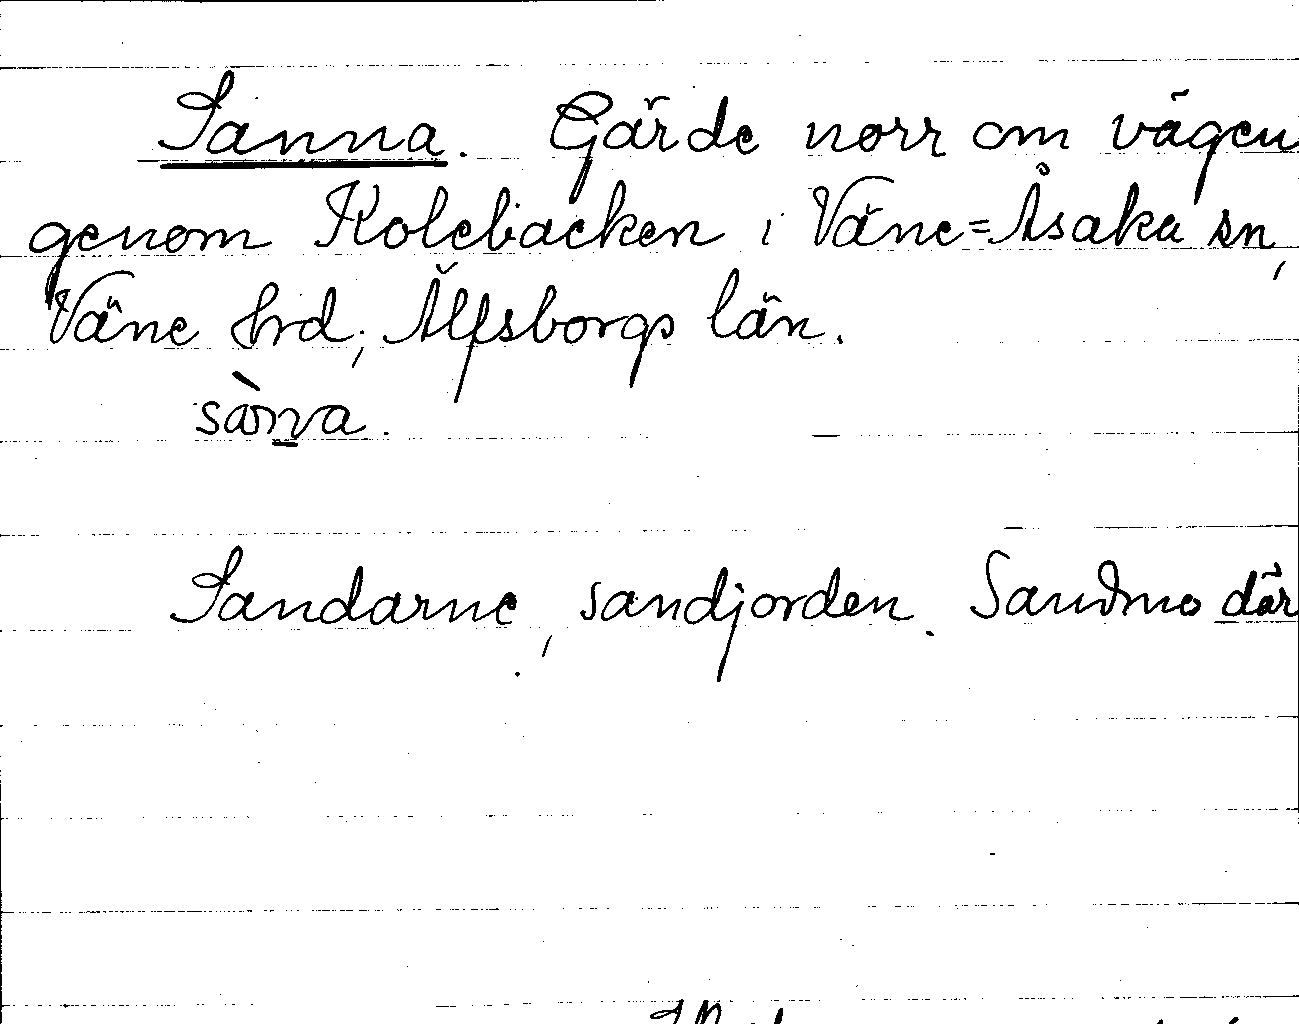 Sanna. Gärde norr om vägen
genom Kolebacken i Väne=Åsaka sn,
Väne hrd, Älfsborgs län.
Sandarne, sandjorden. Sandmo där